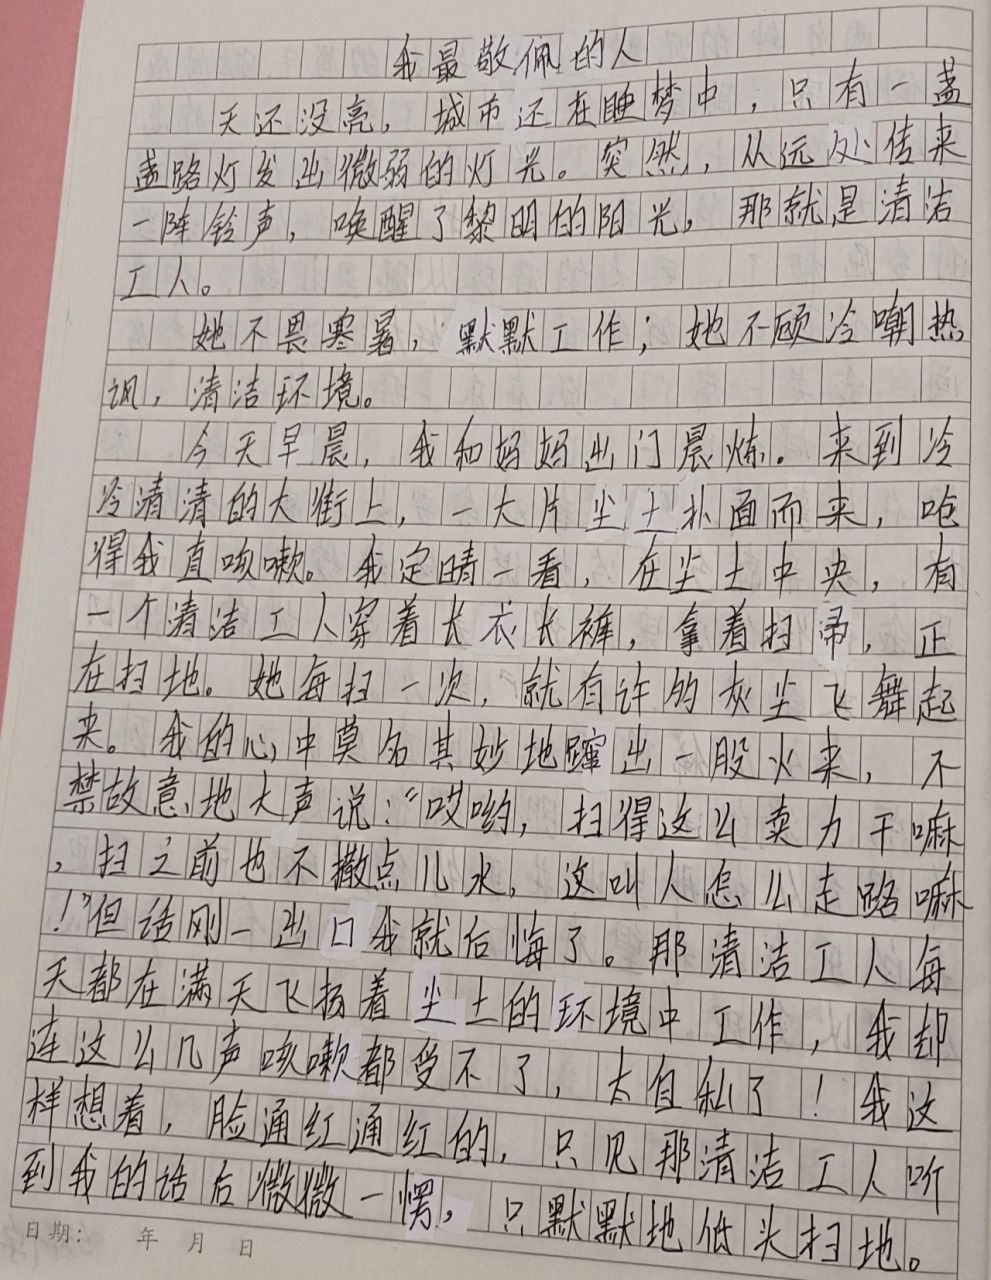 我最敬佩的人
天还没亮，城市还在睡梦中，只有一盏
盏路灯发出微弱的灯光。突然，从远处传来
一阵铃声，唤醒了黎明的阳光，那就是清洁
工人。
她不畏寒暑，默默工作；她不顾冷嘲热
讽，清洁环境。
今天早晨，我和妈妈出门晨炼。来到冷
冷清清的大街上，一大片尘土扑面而来，呛
得我直咳嗽。我定睛一看，在尘土中央，有
一个清洁工人穿着长衣长裤，拿着扫帚，正
在扫地。她每扫一次，就有许的灰尘飞舞起
来。我的心中莫名其妙地蹿出一股火来，不
禁故意地大声说："哎哟，扫得这么卖力干嘛
，扫之前也不撒点儿水，这叫人怎么走路嘛
！"但话刚一出口我就后悔了。那清洁工人每
天都在满天飞扬着尘土的环境中工作，我却
连这么几声咳嗽都受不了，太自私了！我这
样想着，脸通红通红的，只见那清洁工人听
到我的话后微微一愣，只默默地低头扫地。
日期： 年 月 日